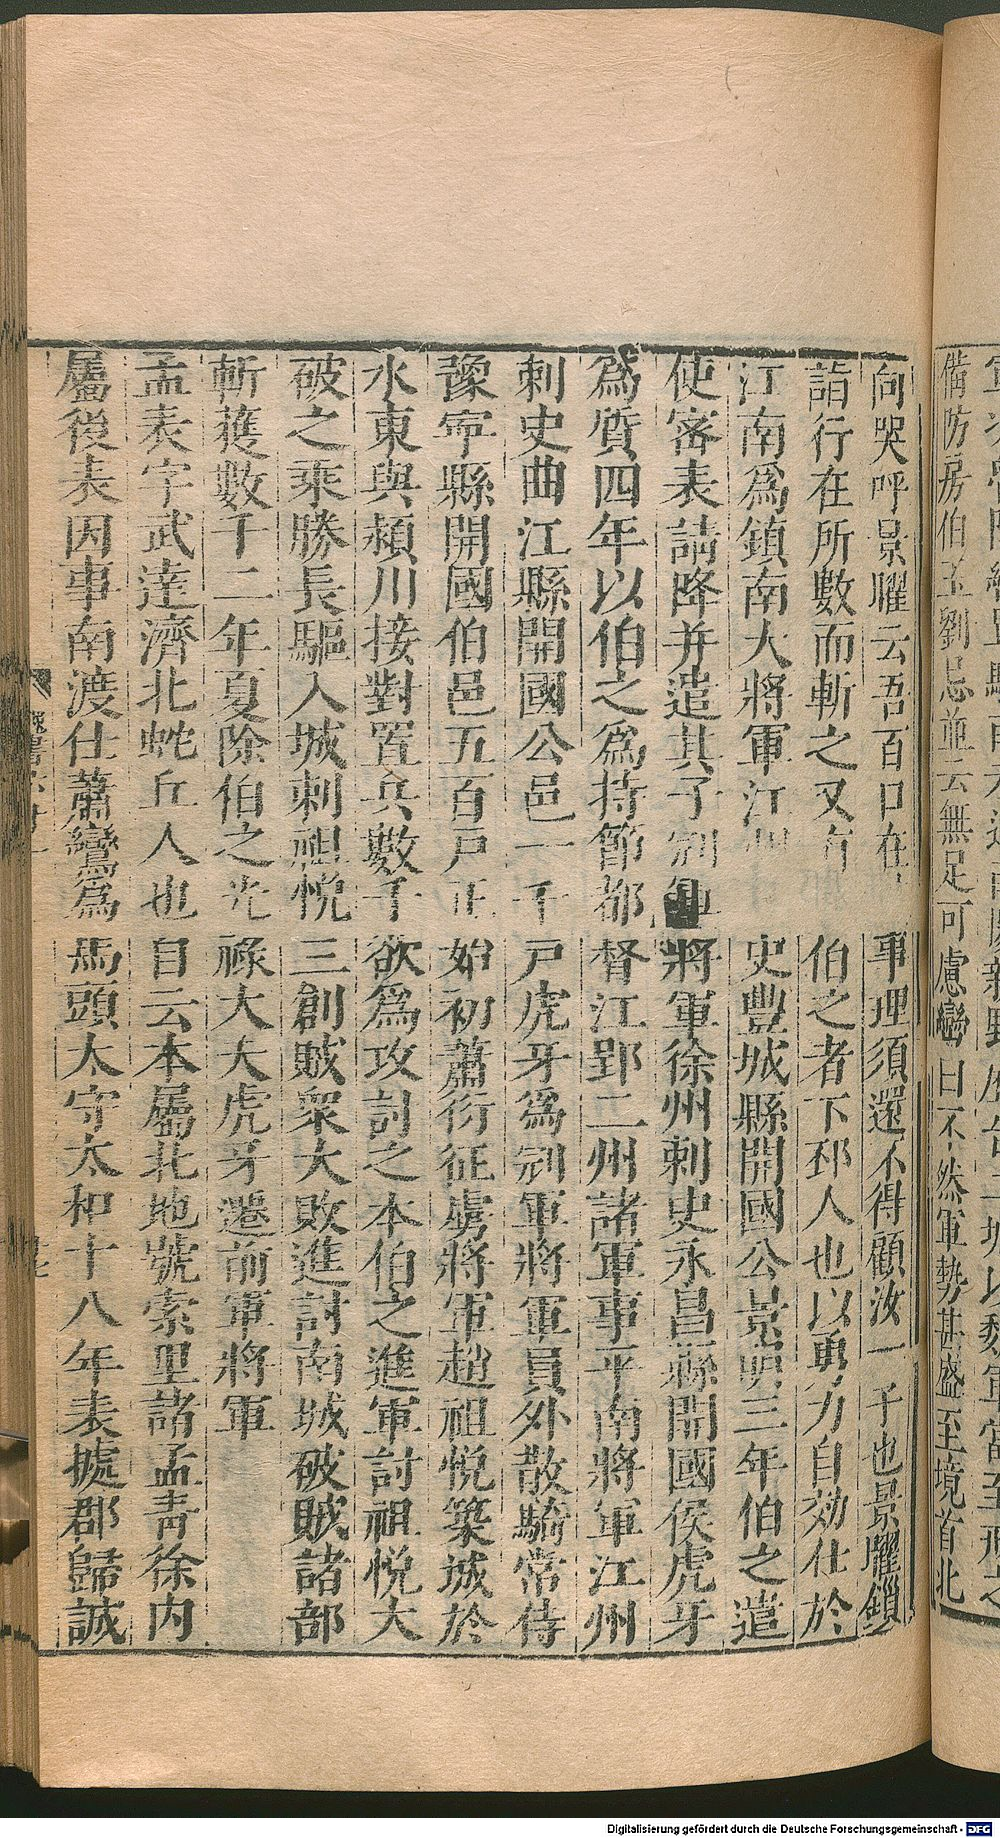 備防房伯玉劉忌並云無足可慮巒曰不然軍勢甚盛至境首北
向哭呼景曜云吾百口在事理須還不得顧汝一子也景曜鎖
詣行在所數而斬之又有伯之者下邳人也以勇力自効仕於
江南爲鎮南大將軍江州史豐城縣開國公景明三年伯之遣
使密表請降并遣其子將軍徐州刺史永昌縣開國侯虎牙
爲質四年以伯之爲持節都督江郢二州諸軍事平南將軍江州
刺史曲江縣開國公邑一千戸虎牙爲冠軍將軍員外散騎常侍
豫寧縣開國伯邑五百戸正始初蕭衍征虜將軍趙祖悦築城於
水東與潁川接對置兵數千欲爲攻討之本伯之進軍討祖悦大
破之乘勝長驅入城刺祖悦三創賊衆大敗進討南城破賊諸部
斬獲數千二年夏除伯之光祿大大虎牙遷前軍將軍
孟表字武達濟北蛇丘人也自云本屬北地號索里諸孟青徐内
屬後表因事南渡仕蕭鸞爲馬頭太守太和十八年表據郡歸誠
Digitalisierung gefördert durch die Deutsche Forschungsgemeinschaft - DFG